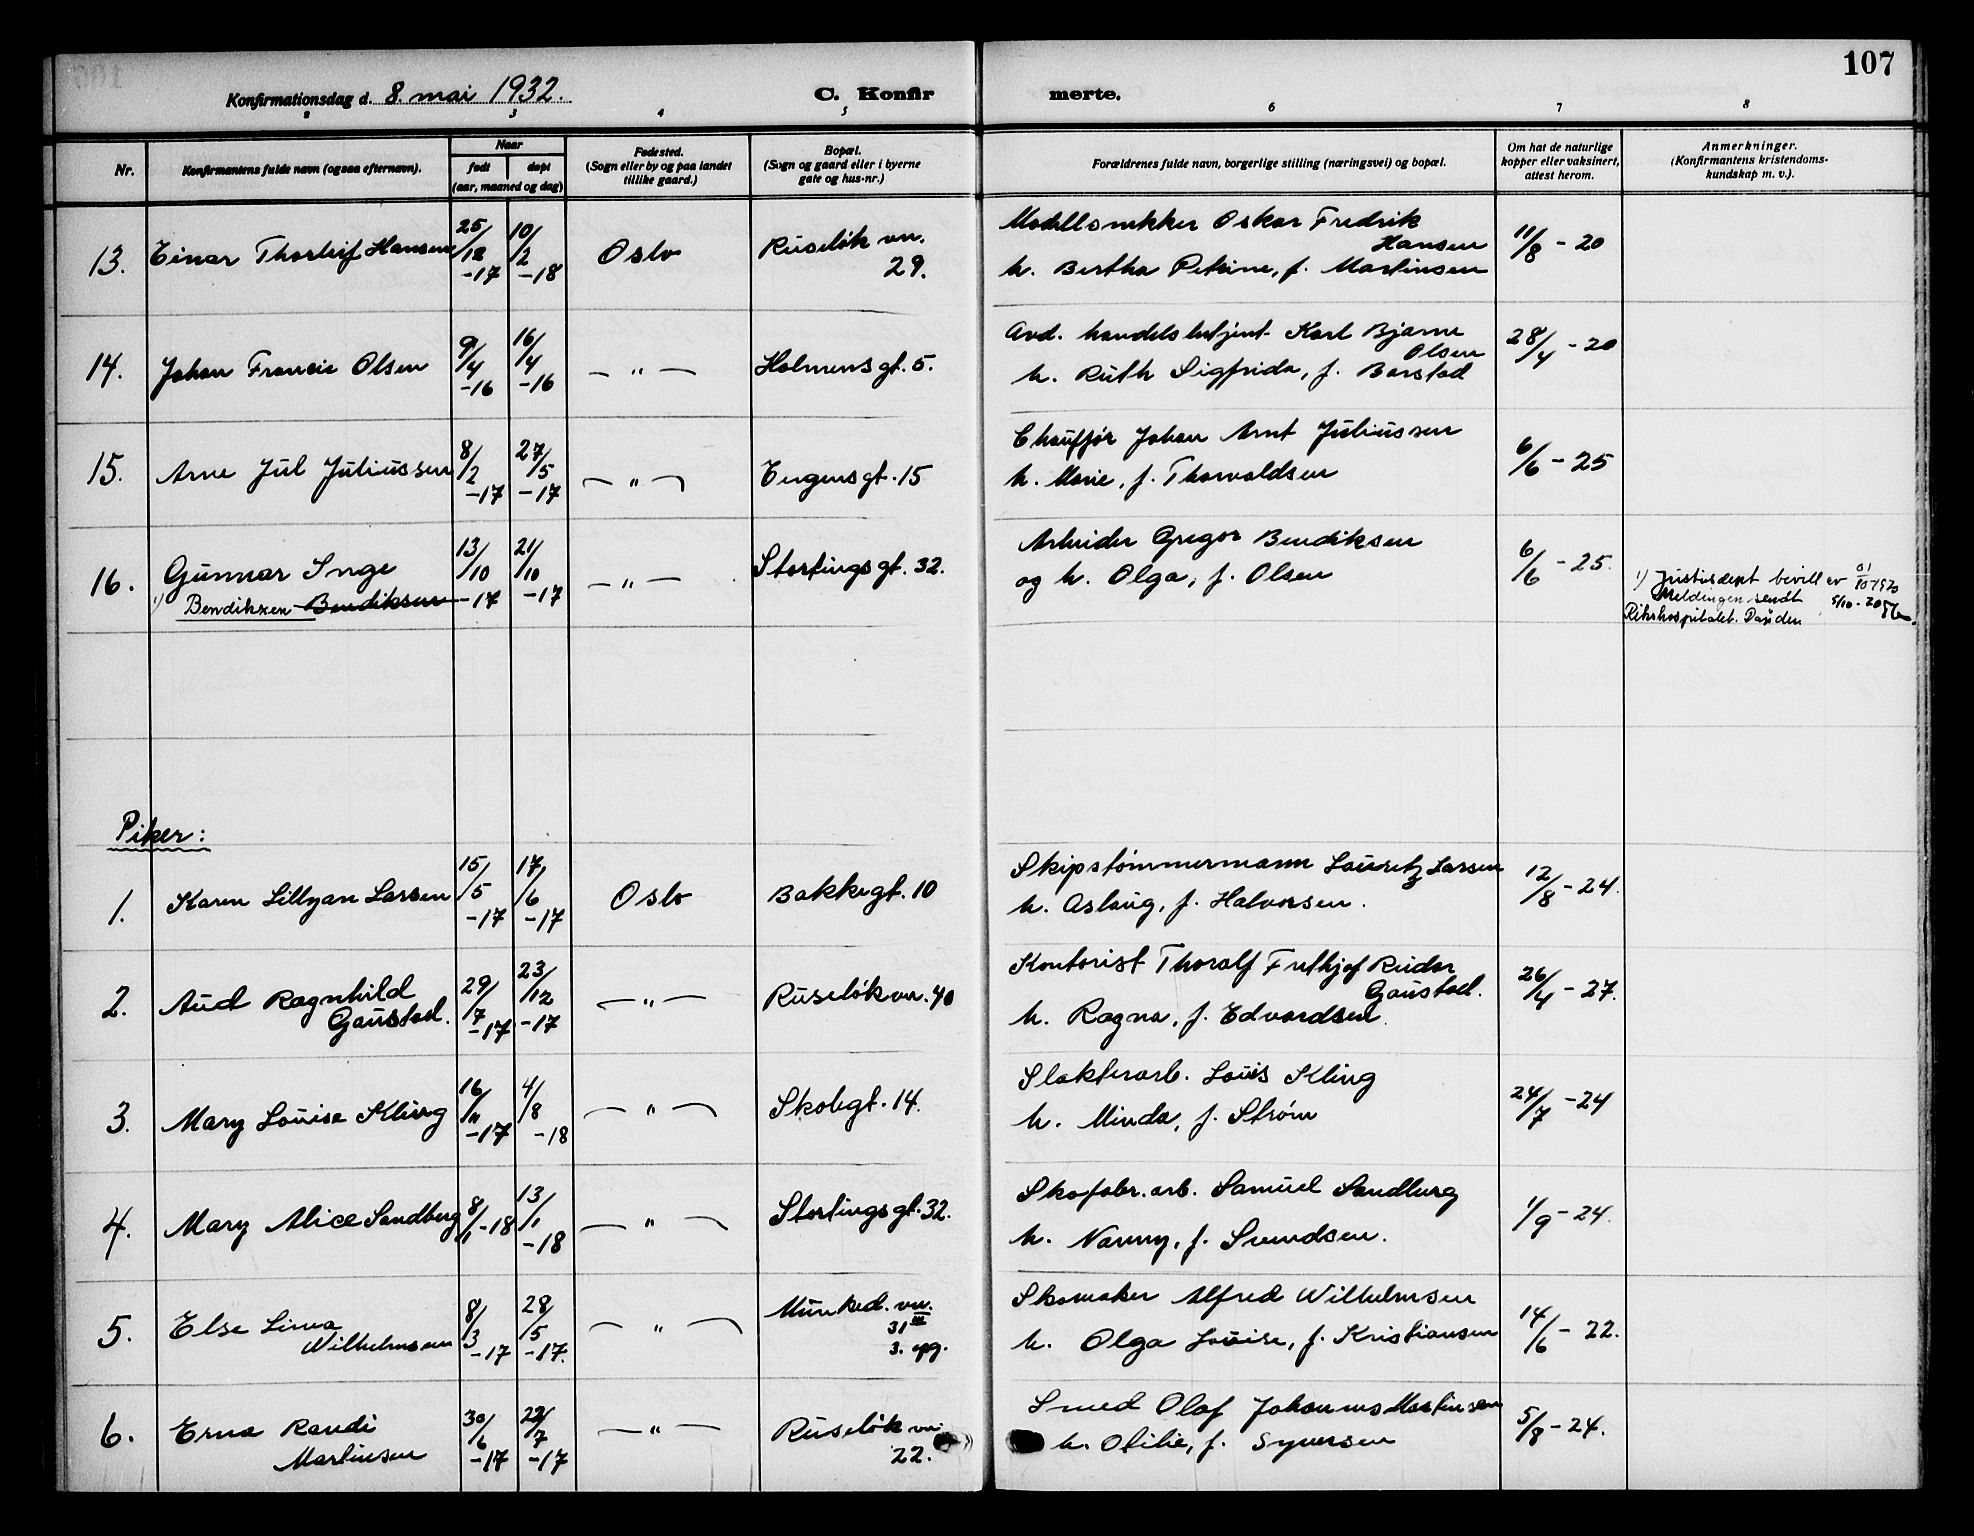 107
Konfirmationsdag d. 8. mai 1932.
C. Konfir
merte.
2 3 4 5 6 7 8
Nr.
Konfirmantens fulde navn (ogsaa efternavn).
Naar
født
døpt
(aar, maaned og dag)
Fødested.
(Sogn eller by og paa landet
tillike gaard.)
Bopæl.
(Sogn og gaard eller i byerne
gate og hus-nr.)
Forældrenes fulde navn, borgerlige stilling (næringsvei) og bopæl.
Om hat de naturlige
kopper eller vaksinert,
attest herom.
Anmerkninger.
(Konfirmantens kristendoms-
kundskap m. v.).
13. Einar Thorleif Hansen
25/12 -17
10/2 -18
Oslo
Ruseløk vn.
29.
Modellsnekker Oskar Fredrik
Hansen
h. Bertha Petrine, f. Martinsen
11/8 - 20
14. Johan Francis Olsen
9/4 -16
16/4 -16
— " —
Holmensgt. 5.
Avd. handelsbetjent Karl Bjarne
Olsen
h. Ruth Sigfrida, f. Barstad
28/4 - 20
15. Arne Jul Juliussen
8/2 -17
27/5 -17
— " —
Engensgt. 15
Chauffør Johan Arnt Juliussen
h. Marie, f. Thorvaldsen
6/6 - 25
16. Gunnar Inge
1) Bendixen Bendiksen
13/10 -17
21/10 -17
— " —
Stortingsgt. 32.
Arbeider Gregor Bendiksen
og h. Olga, f. Olsen
6/6 - 25.
1) Justisdept bevill av
Meldingen sendt
Rikshospitalet.
Piker:
1. Karen Lillyan Larsen
15/5 -17
17/6 -17
Oslo
Bakkegt. 10
Skipstømmermann Lauritz Larsen
h. Aslaug, f. Halvorsen.
12/8 - 24.
2. Aud Ragnhild
Gaustad.
29/7 -17
23/12 -17
— " —
Ruseløkvn. 40
Kontorist Thoralf Frithjof Reidar
Gaustad.
h. Ragna, f. Edvardsen.
26/4 - 27.
3. Mary Louise Kling
16/11 -17
4/8 -18
— " —
Skolegt. 14.
Slakterarb. Louis Kling
h. Minda, f. Strøm
24/7 - 24
4. Mary Alice Sandberg
8/1 -18
13/1 -18
— " —
Stortingsgt. 32.
Skofabr. arb. Samuel Sandberg
h. Nanny, f. Svendsen.
1/9 - 24.
5. Else Lirna
Wilhelmsen
8/3 -17
28/5 -17.
— " —
Munked. vn.
31 III
3. opg.
Skomaker Alfred Wilhelmsen
h. Olga Louise, f. Kristiansen
14/6 - 22.
6. Erna Randi
Martinsen
30/6 -17
22/7 -17
— " —
Ruseløk vn.
22.
Smed Olaf Johannes Martinsen
h. Otilie, f. Syversen
5/8 - 24.